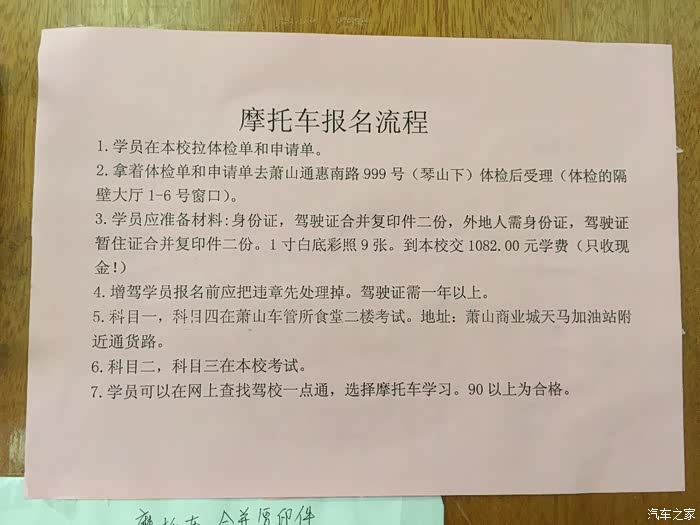 摩托车报名流程
1.学员在本校拉体检单和申请单。
2.拿着体检单和申请单去萧山通惠南路999号（琴山下）体检后受理（体检的隔
壁大厅1-6号窗口）。
3.学员应准备材料:身份证，驾驶证合并复印件二份，外地人需身份证，驾驶证
暂住证合并复印件二份。1寸白底彩照9张。到本校交1082.00元学费（只收现
金!）
4.增驾学员报名前应把违章先处理掉。驾驶证需一年以上。
5.科目一，科目四在萧山车管所食堂二楼考试。地址：萧山商业城天马加油站附
近通货路。
6.科目二，科目三在本校考试。
7.学员可以在网上查找驾校一点通，选择摩托车学习。90以上为合格。
摩托车 合并复印件
汽车之家